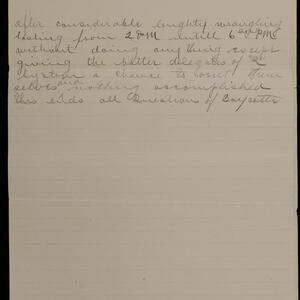 after considerable lengthy wrangling
lasting from 2 PM until 6 PM
without doing any thing except
giving the better delegates of
a chance to boost them
selves and nothing accomplished
this ends all Questions of Boycotts